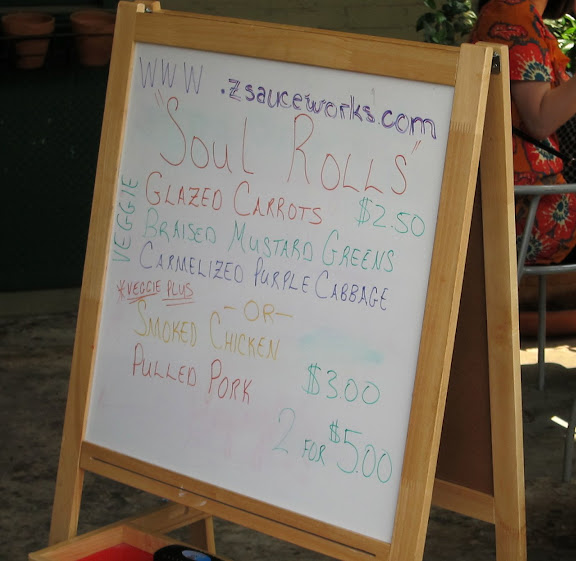 WWW.zsauceworks.com
"Soul Rolls"
VEGGIE
GLAZED CARROTS $2.50
BRAISED MUSTARD GREENS
CARMELIZED PURPLE CABBAGE
*VEGGIE PLUS
- OR -
SMOKED CHICKEN
PULLED PORK $3.00
2 FOR $5.00